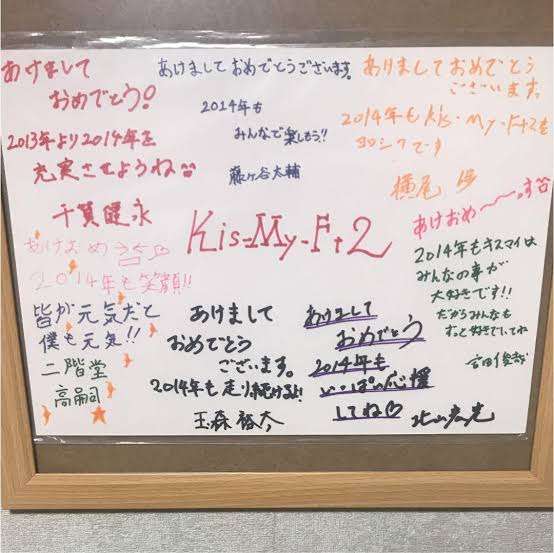 あけまして
おめでとう!
2013年より2014年を
充実させようね
千賀健永
あけましておめでとうございます。
2014年も
みんなで楽しもう!!
藤ヶ谷太輔
あけましておめでとう
ございます。
2014年もKis-My-Ft2を
ヨロシクです
横尾 渉
Kis-My-Ft2
あけおめ
2014年も笑顔!!
皆が元気だと
僕も元気!!
二階堂
高嗣
あけまして
おめでとう
ございます。
2014年も走り続けるよ!
玉森裕太
あけまして
おめでとう
2014年も
いっぱい応援
してね♡
北山宏光
あけおめ〜〜っす
2014年もキスマイは
みんなの事が
大好きです!!
だからみんなも
ずっと好きでいてね
宮田俊哉